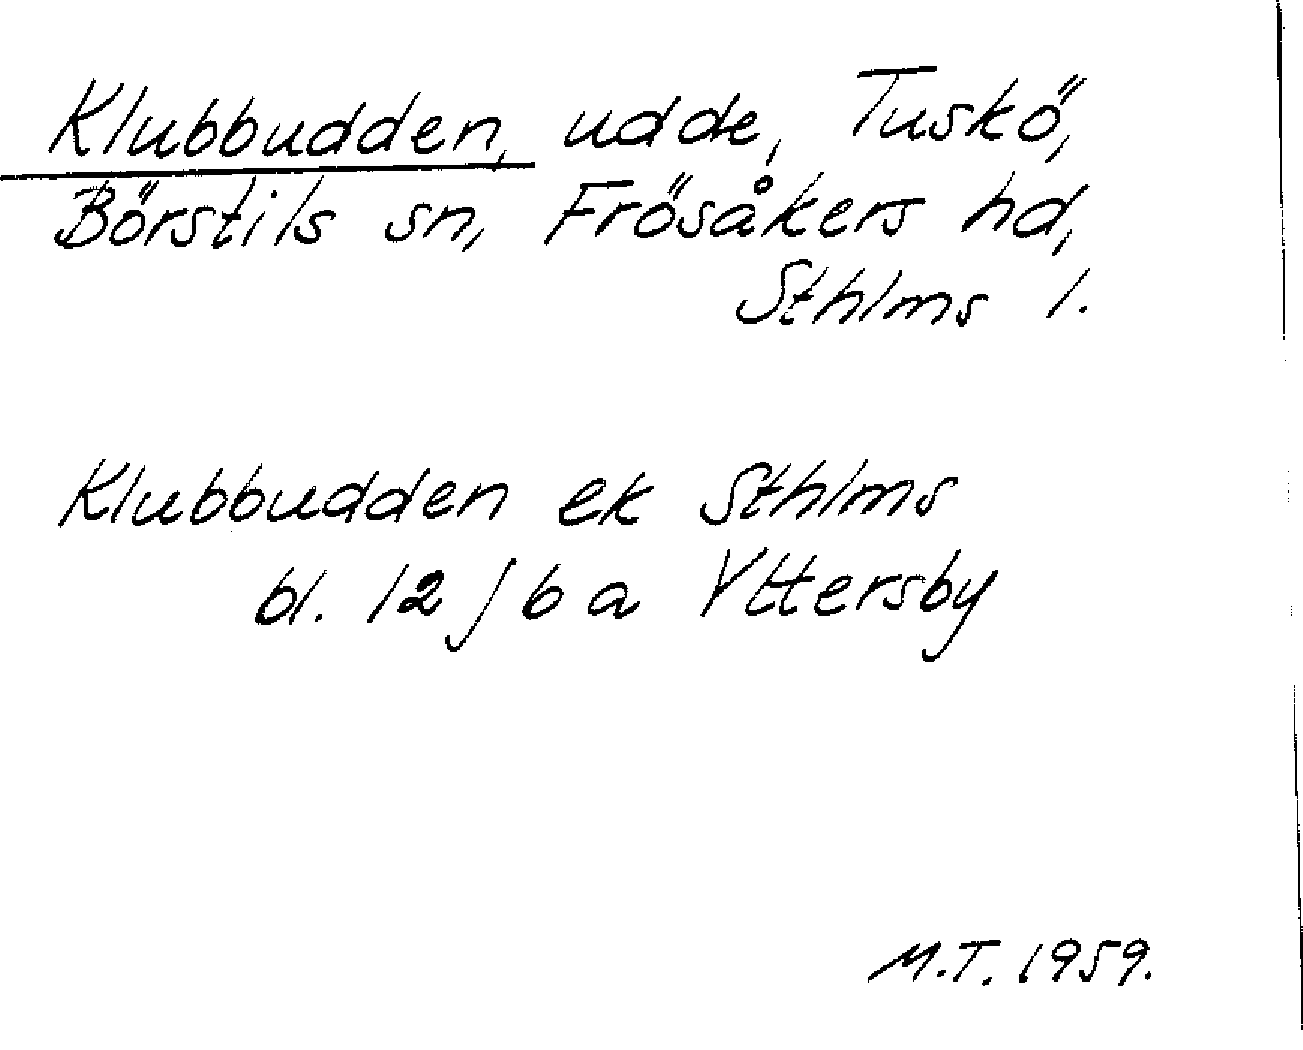 Klubbudden, udde, Tuskö,
Börstils sn, Frösåkers hd,
Sthlms l.
Klubbudden ek Sthlms
bl. 12 j 6 a Yttersby
M.T. 1959.